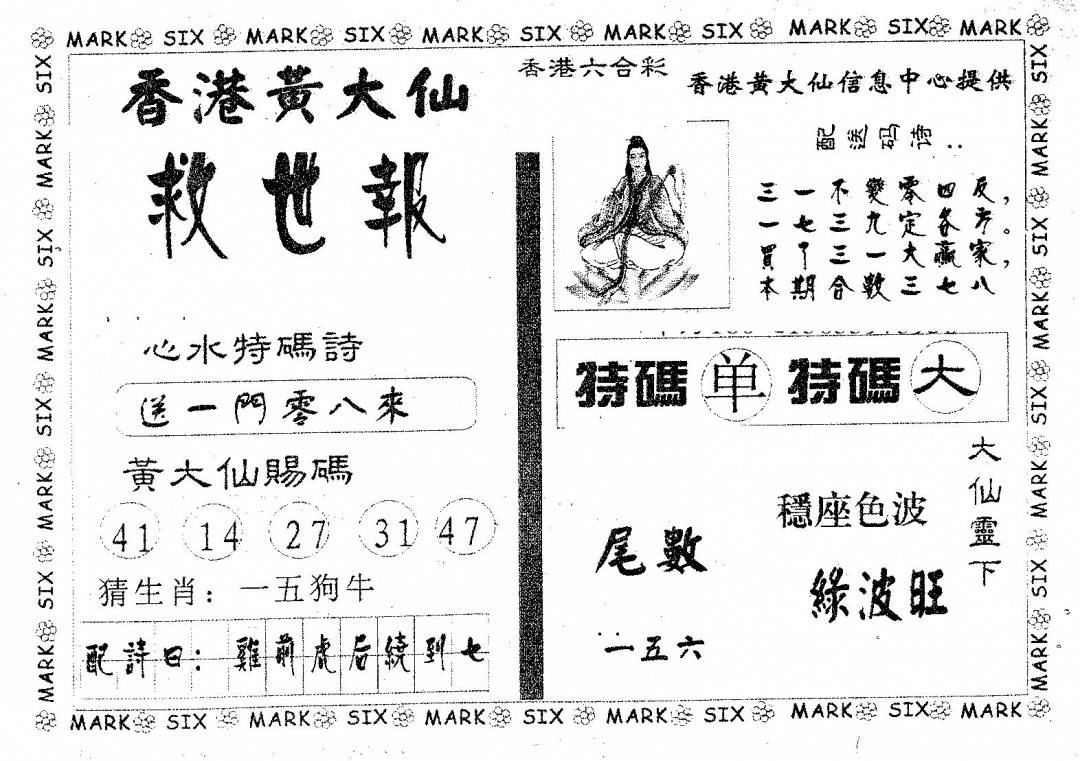 MARK SIX MARK SIX MARK SIX MARK SIX MARK SIX MARK
香港黃大仙
救世報
心水特碼詩
送一門零八來
黃大仙賜碼
41 14 27 31 47
猜生肖：一五狗牛
配詩曰：雞前虎后繞到七
香港六合彩
香港黃大仙信息中心提供
配送码诗：
三一不變零四反，
一七三九定各方。
買了三一大贏家，
本期合數三七八
特碼 单 特碼 大
大仙靈下
穩座色波
綠波旺
尾數
一五六
MARK SIX MARK SIX MARK SIX MARK SIX MARK SIX MARK
SIX MARK SIX MARK SIX MARK SIX MARK
SIX MARK SIX MARK SIX MARK SIX MARK